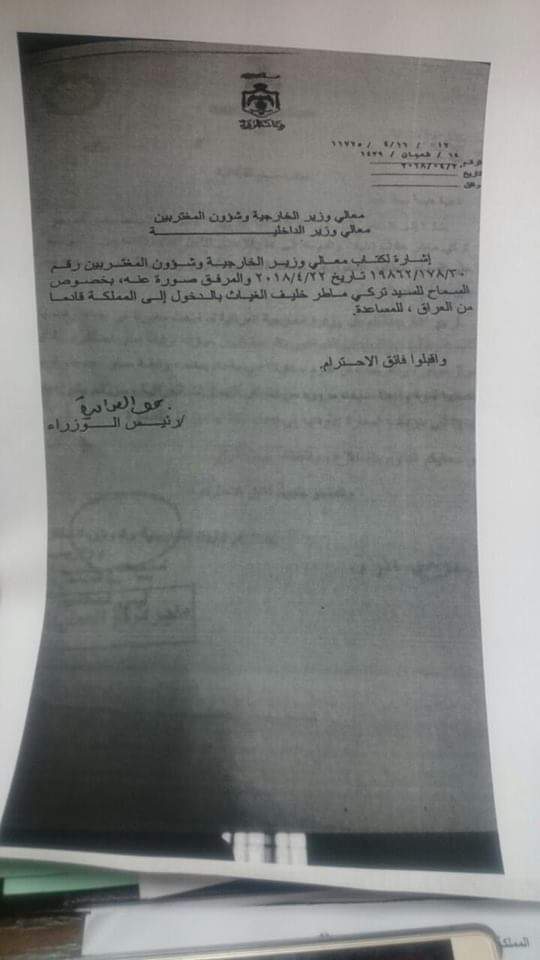 رئاسة الوزراء
الرقم ١٢ / ٤/١٦ / ١١٧٢٥
التاريخ ١٤ / شعبان / ١٤٣٩
الموافق ٢٠١٨/٠٤/٣٠
معالي وزير الخارجية وشؤون المغتربين
معالي وزير الداخليـــــــــة
إشارة لكتاب معالي وزير الخارجية وشؤون المغتربين رقم
١٩٨٦٢/١٧٨/٣٠ تاريخ ٢٠١٨/٤/٢٢ والمرفق صورة عنه، بخصوص
السماح للسيد تركي ماطر خليف الغياث بالدخول إلى المملكة قادما
من العراق ، للمساعدة.
واقبلوا فائق الاحترام.
/رئيس الـــوزراء
المملكة